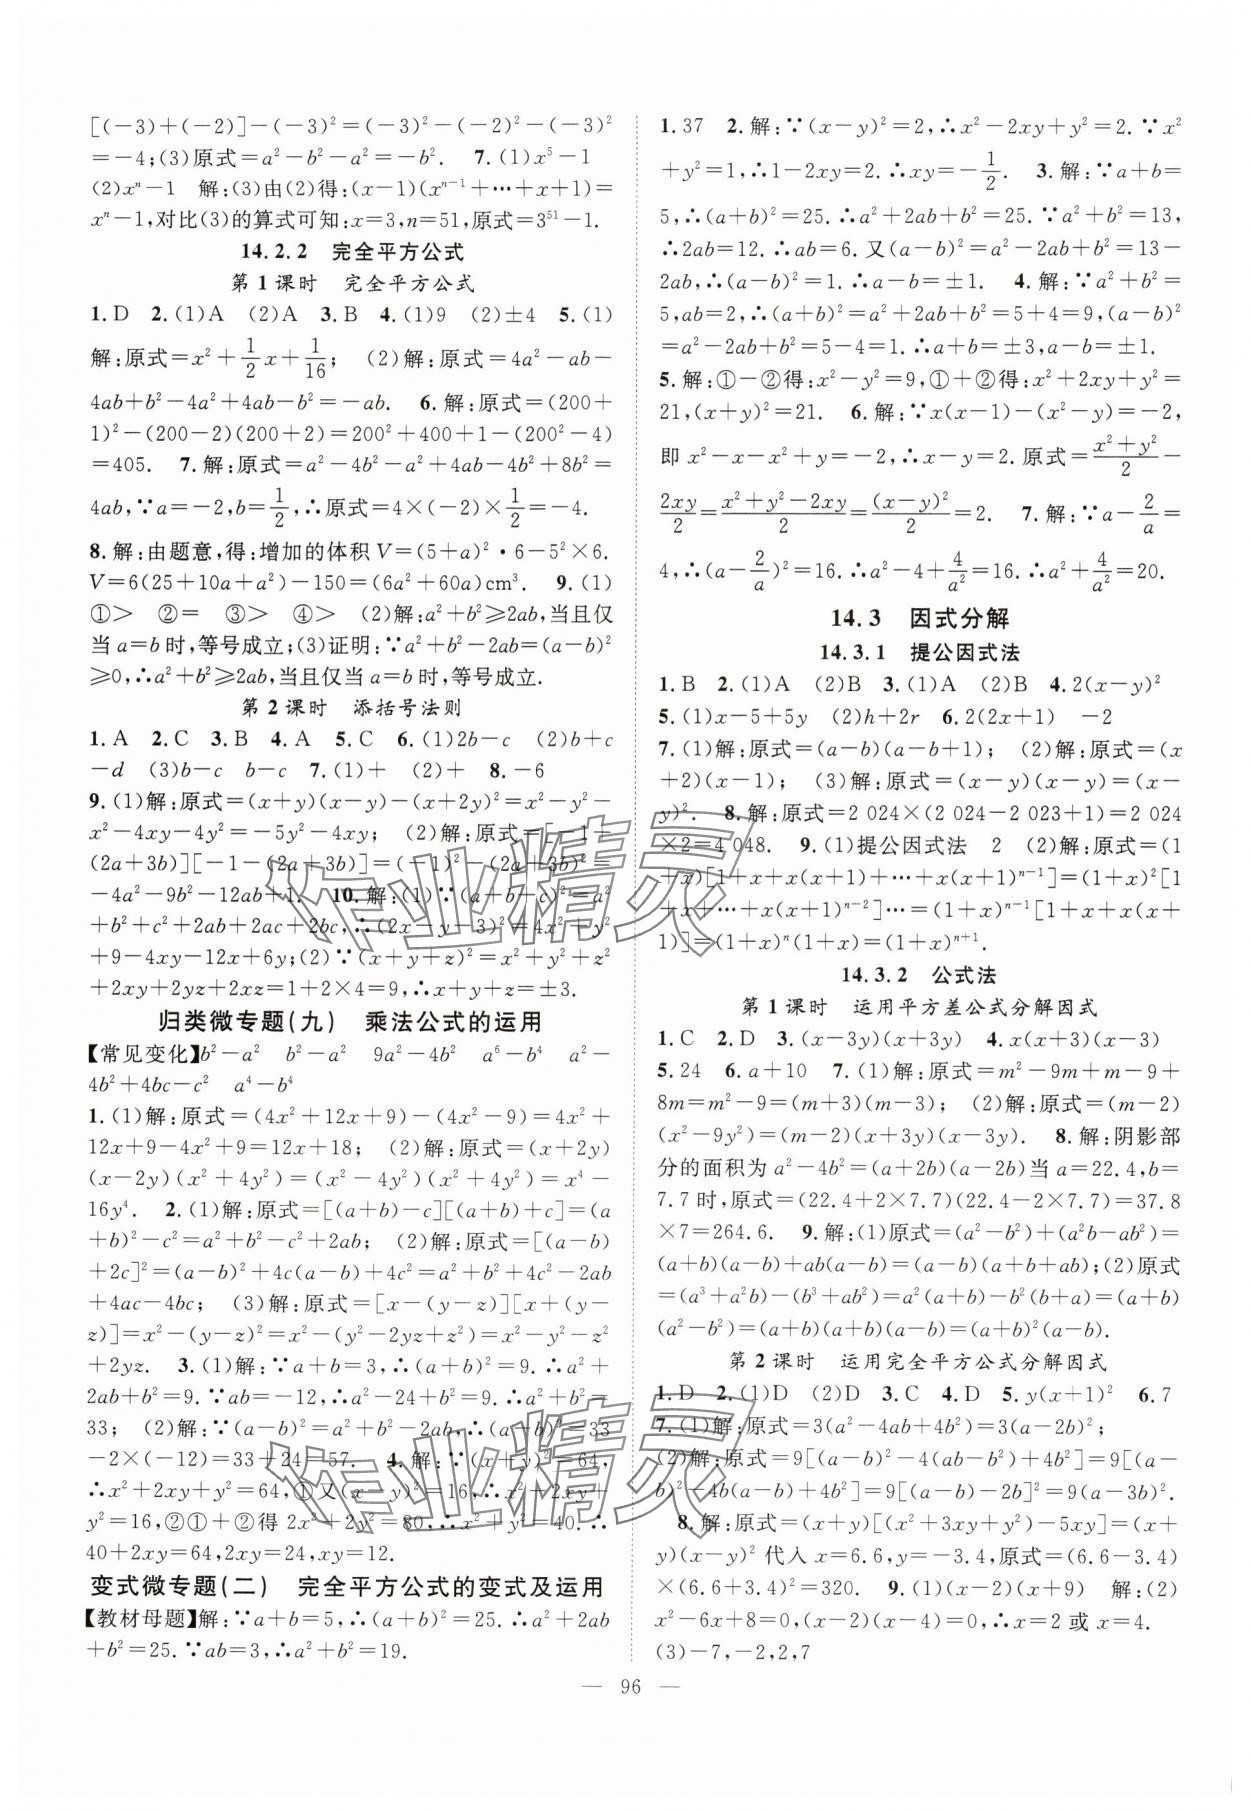 [(-3)+(-2)]-(-3)²=(-3)²-(-2)²-(-3)²
=-4;(3)原式=a²-b²-a²=-b². 7.(1)x⁵-1
(2)xⁿ-1 解:(3)由(2)得:(x-1)(xⁿ⁻¹+…+x+1)=
xⁿ-1,对比(3)的算式可知:x=3,n=51,原式=3⁵¹-1.
14.2.2 完全平方公式
第1课时 完全平方公式
1.D 2.(1)A (2)A 3.B 4.(1)9 (2)±4 5.(1)
解:原式=x²+1/2x+1/16; (2)解:原式=4a²-ab-
4ab+b²-4a²+4ab-b²=-ab. 6.解:原式=(200+
1)²-(200-2)(200+2)=200²+400+1-(200²-4)
=405. 7.解:原式=a²-4b²-a²+4ab-4b²+8b²=
4ab,∵a=-2,b=1/2,∴原式=4×(-2)×1/2=-4.
8.解:由题意,得:增加的体积V=(5+a)²·6-5²×6.
V=6(25+10a+a²)-150=(6a²+60a)cm³. 9.(1)
①> ②= ③> ④> (2)解:a²+b²≥2ab,当且仅
当a=b时,等号成立;(3)证明:∵a²+b²-2ab=(a-b)²
≥0,∴a²+b²≥2ab,当且仅当a=b时,等号成立.
第2课时 添括号法则
1.A 2.C 3.B 4.A 5.C 6.(1)2b-c (2)b+c
-d (3)b-c b-c 7.(1)+ (2)+ 8.-6
9.(1)解:原式=(x+y)(x-y)-(x+2y)²=x²-y²-
x²-4xy-4y²=-5y²-4xy; (2)解:原式=[-1+
(2a+3b)][-1-(2a+3b)]=(-1)²-(2a+3b)²=1
-4a²-9b²-12ab+1. 10.解:(1)∵(a+b+c)²=a²
+b²+c²+2ab+2ac+2bc,∴(2x-y-3)²=4x²+y²
+9-4xy-12x+6y;(2)∵(x+y+z)²=x²+y²+z²
+2xy+2xz+2yz=1+2×4=9,∴x+y+z=±3.
归类微专题(九) 乘法公式的运用
【常见变化】b²-a² b²-a² 9a²-4b² a⁶-b⁴ a²-
4b²+4bc-c² a⁴-b⁴
1.(1)解:原式=(4x²+12x+9)-(4x²-9)=4x²+
12x+9-4x²+9=12x+18; (2)解:原式=(x+2y)
(x-2y)(x²+4y²)=(x²-4y²)(x²+4y²)=x⁴-
16y⁴. 2.(1)解:原式=[(a+b)-c][(a+b)+c]=(a
+b)²-c²=a²+b²-c²+2ab; (2)解:原式=[(a-b)
+2c]²=(a-b)²+4c(a-b)+4c²=a²+b²+4c²-2ab
+4ac-4bc; (3)解:原式=[x-(y-z)][x+(y-
z)]=x²-(y-z)²=x²-(y²-2yz+z²)=x²-y²-z²
+2yz. 3.(1)解:∵a+b=3,∴(a+b)²=9.∴a²+
2ab+b²=9.∵ab=-12,∴a²-24+b²=9.∴a²+b²=
33; (2)解:∵(a-b)²=a²+b²-2ab,∴(a-b)²=33
-2×(-12)=33+24=57. 4.解:∵(x+y)²=64,
∴x²+2xy+y²=64,①又(x-y)²=16,∴x²-2xy+
y²=16,②①+②得2x²+2y²=80.∴x²+y²=40.∴
40+2xy=64,2xy=24,xy=12.
变式微专题(二) 完全平方公式的变式及运用
【教材母题】解:∵a+b=5,∴(a+b)²=25.∴a²+2ab
+b²=25.∵ab=3,∴a²+b²=19.
1.37 2.解:∵(x-y)²=2,∴x²-2xy+y²=2.∵x²
+y²=1,∴1-2xy=2.∴xy=-1/2. 3.解:∵a+b=
5,∴(a+b)²=25.∴a²+2ab+b²=25.∵a²+b²=13,
∴2ab=12.∴ab=6.又(a-b)²=a²-2ab+b²=13-
2ab,∴(a-b)²=1.∴a-b=±1. 4.解:∵a²+b²=
5,ab=2,∴(a+b)²=a²+2ab+b²=5+4=9,(a-b)²
=a²-2ab+b²=5-4=1.∴a+b=±3,a-b=±1.
5.解:①-②得:x²-y²=9,①+②得:x²+2xy+y²=
21,(x+y)²=21. 6.解:∵x(x-1)-(x²-y)=-2,
即x²-x-x²+y=-2,∴x-y=2.原式=(x²+y²)/2-
2xy/2=(x²+y²-2xy)/2=(x-y)²/2=2. 7.解:∵a-2/a=
4,∴(a-2/a)²=16.∴a²-4+4/a²=16.∴a²+4/a²=20.
14.3 因式分解
14.3.1 提公因式法
1.B 2.(1)A (2)B 3.(1)A (2)B 4.2(x-y)²
5.(1)x-5+5y (2)h+2r 6.2(2x+1) -2
7.(1)解:原式=(a-b)(a-b+1); (2)解:原式=(x
+2)(x-1); (3)解:原式=(x-y)(x-y)=(x-
y)². 8.解:原式=2 024×(2 024-2 023+1)=2 024
×2=4 048. 9.(1)提公因式法 2 (2)解:原式=(1
+x)[1+x+x(x+1)+…+x(x+1)ⁿ⁻¹]=(1+x)²[1
+x+…+x(x+1)ⁿ⁻²]…=(1+x)ⁿ⁻¹[1+x+x(x+
1)]=(1+x)ⁿ(1+x)=(1+x)ⁿ⁺¹.
14.3.2 公式法
第1课时 运用平方差公式分解因式
1.C 2.D 3.(x-3y)(x+3y) 4.x(x+3)(x-3)
5.24 6.a+10 7.(1)解:原式=m²-9m+m-9+
8m=m²-9=(m+3)(m-3); (2)解:原式=(m-2)
(x²-9y²)=(m-2)(x+3y)(x-3y). 8.解:阴影部
分的面积为a²-4b²=(a+2b)(a-2b)当a=22.4,b=
7.7时,原式=(22.4+2×7.7)(22.4-2×7.7)=37.8
×7=264.6. 9.解:(1)原式=(a²-b²)+(a²b-ab²)=
(a+b)(a-b)+ab(a-b)=(a-b)(a+b+ab);(2)原式
=(a³+a²b)-(b³+ab²)=a²(a+b)-b²(b+a)=(a+b)
(a²-b²)=(a+b)(a+b)(a-b)=(a+b)²(a-b).
第2课时 运用完全平方公式分解因式
1.D 2.(1)D (2)D 3.C 4.D 5.y(x+1)² 6.7
7.(1)解:原式=3(a²-4ab+4b²)=3(a-2b)²;
(2)解:原式=9[(a-b)²-4(ab-b²)+4b²]=9[(a-
b)²-4b(a-b)+4b²]=9[(a-b)-2b]²=9(a-3b)².
8.解:原式=(x+y)[(x²+3xy+y²)-5xy]=(x+
y)(x-y)²代入x=6.6,y=-3.4,原式=(6.6-3.4)
×(6.6+3.4)²=320. 9.(1)(x-2)(x-9) 解:(2)
x²-6x+8=0,(x-2)(x-4)=0,∴x=2或x=4.
(3)-7,-2,2,7
— 96 —
作业精灵
作业精灵